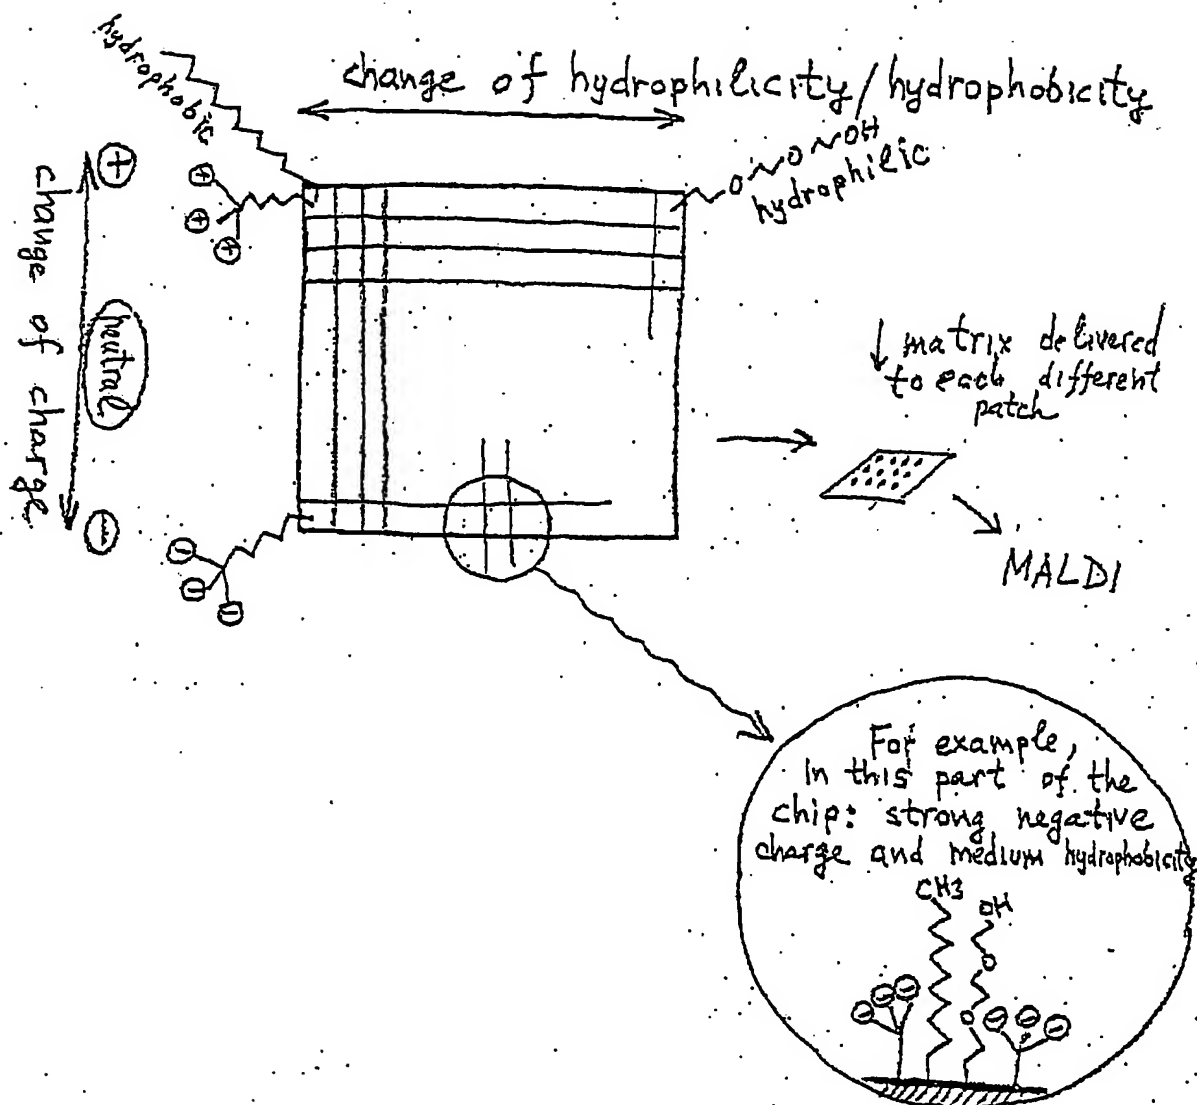 change of hydrophilicity/hydrophobicity
hydrophobic
OH
O
O
hydrophilic
+
+
+
+
change of charge
neutral
−
−
−
−
matrix delivered
to each different
patch
MALDI
For example,
in this part of the
chip: strong negative
charge and medium hydrophobicity
CH3
OH
O
O
− − −
− − −